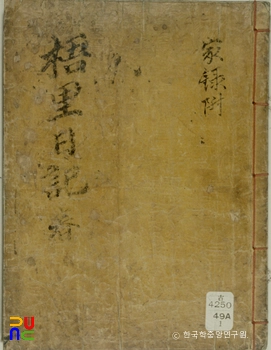 家録附
梧里日記
古
4250
49A
1
ⓒ 한국학중앙연구원